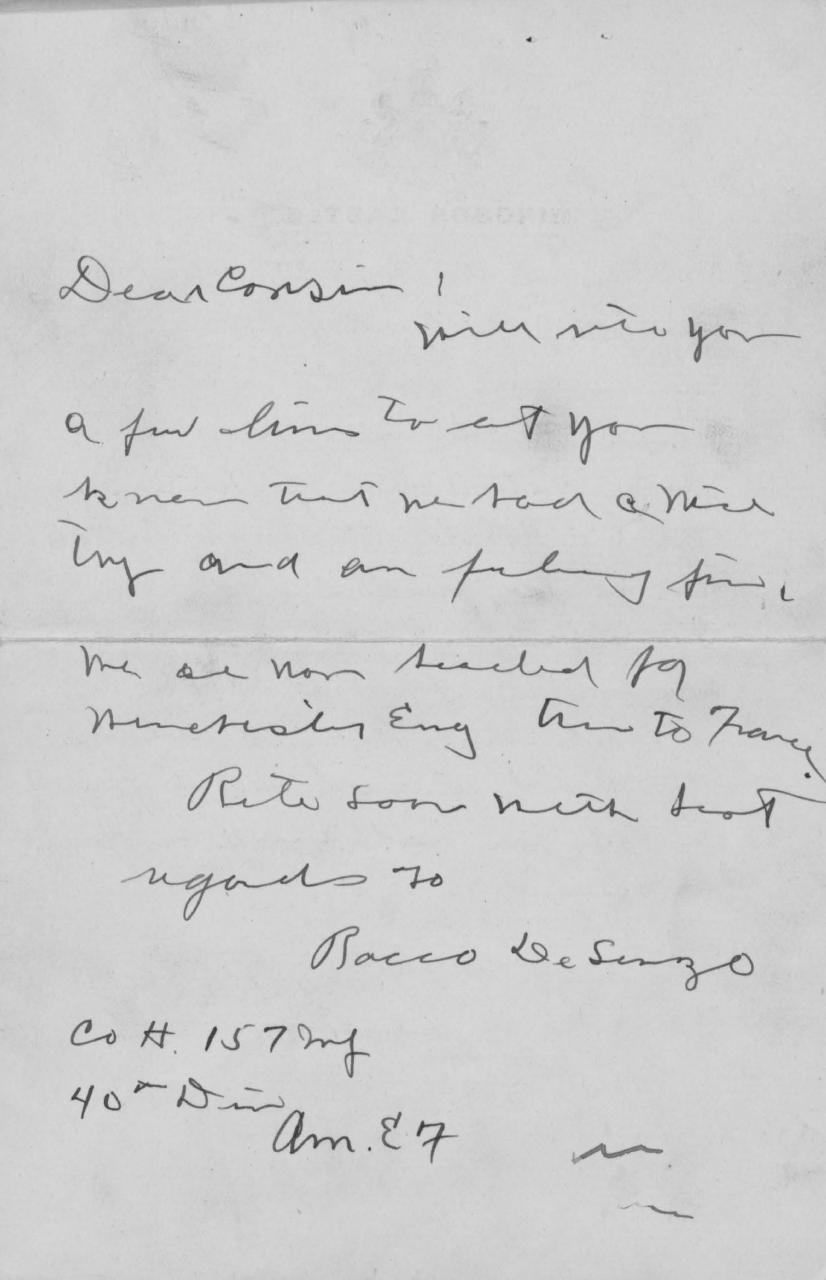 Dear Cousin!
will rite you
a few lines to let you
know that we had a nice
trip and am feeling fine,
we are now headed for
Winchester Eng then to France.
Rite soon with best
regards to
Rocco De
Co H. 157 Inf
40th Div
Am. E F